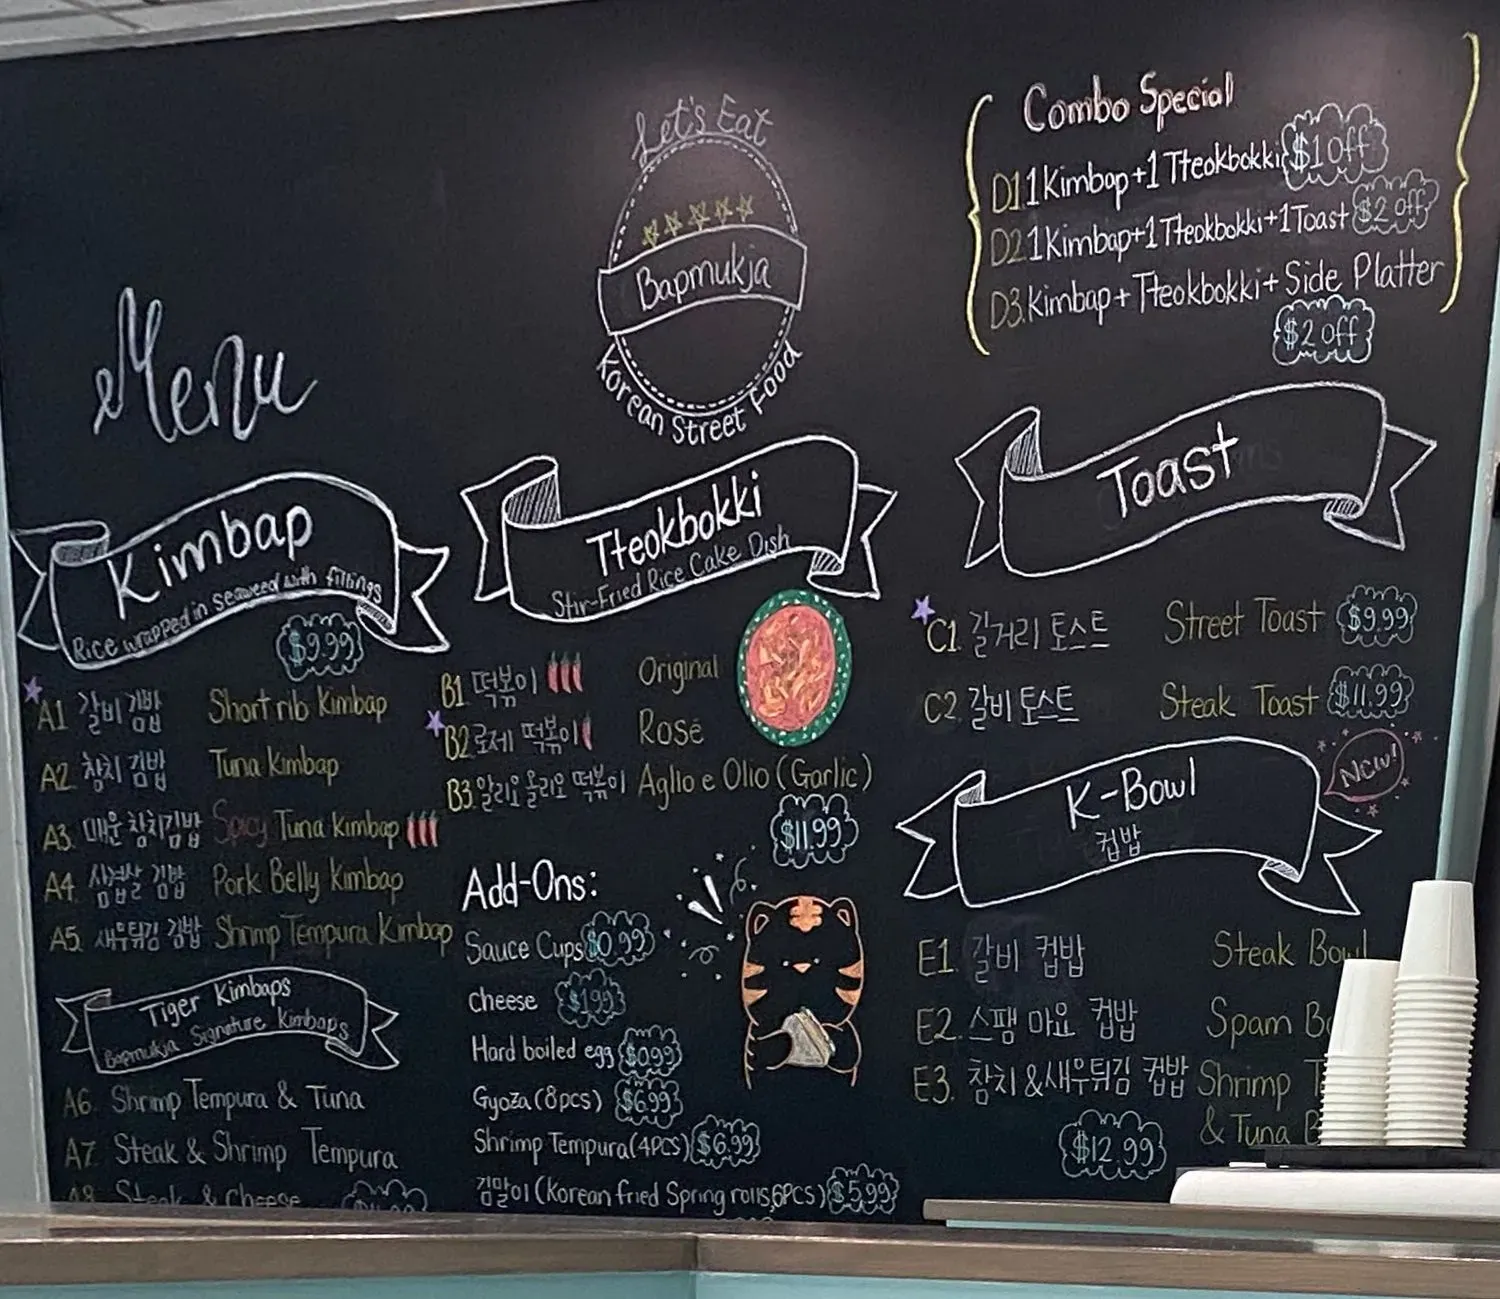 Let's Eat
Bapmukja
Korean Street Food
Menu
Combo Special
D1 1 Kimbap+1 Tteokbokki $1 off
D2 1 Kimbap+1 Tteokbokki+1 Toast $2 off
D3. Kimbap+ Tteokbokki+ Side Platter
$2 off
Kimbap
Rice wrapped in seaweed with fillings
$9.99
A1 갈비 김밥 Short rib Kimbap
A2. 참치 김밥 Tuna Kimbap
A3. 매운 참치김밥 Spicy Tuna Kimbap
A4 삼겹살 김밥 Pork Belly Kimbap
A5. 새우튀김 김밥 Shrimp Tempura Kimbap
Tiger Kimbaps
Bapmukja Signature Kimbaps
A6. Shrimp Tempura & Tuna
A7. Steak & Shrimp Tempura
A8. Steak & Cheese
Tteokbokki
Stir-Fried Rice Cake Dish
B1 떡볶이 Original
B2 로제 떡볶이 Rosé
B3. 알리오 올리오 떡볶이 Aglio e Olio (Garlic)
$11.99
Add-Ons:
Sauce Cups $0.99
cheese $1.99
Hard boiled egg $0.99
Gyoza (8pcs) $6.99
Shrimp Tempura (4PCS) $6.99
김말이 (Korean fried Spring rolls, 6PCS) $5.99
Toast
C1. 길거리 토스트 Street Toast $9.99
C2. 갈비 토스트 Steak Toast $11.99
K-Bowl
컵밥
New!
E1. 갈비 컵밥 Steak Bowl
E2. 스팸 마요 컵밥 Spam
E3. 참치 & 새우튀김 컵밥 Shrimp
& Tuna
$12.99